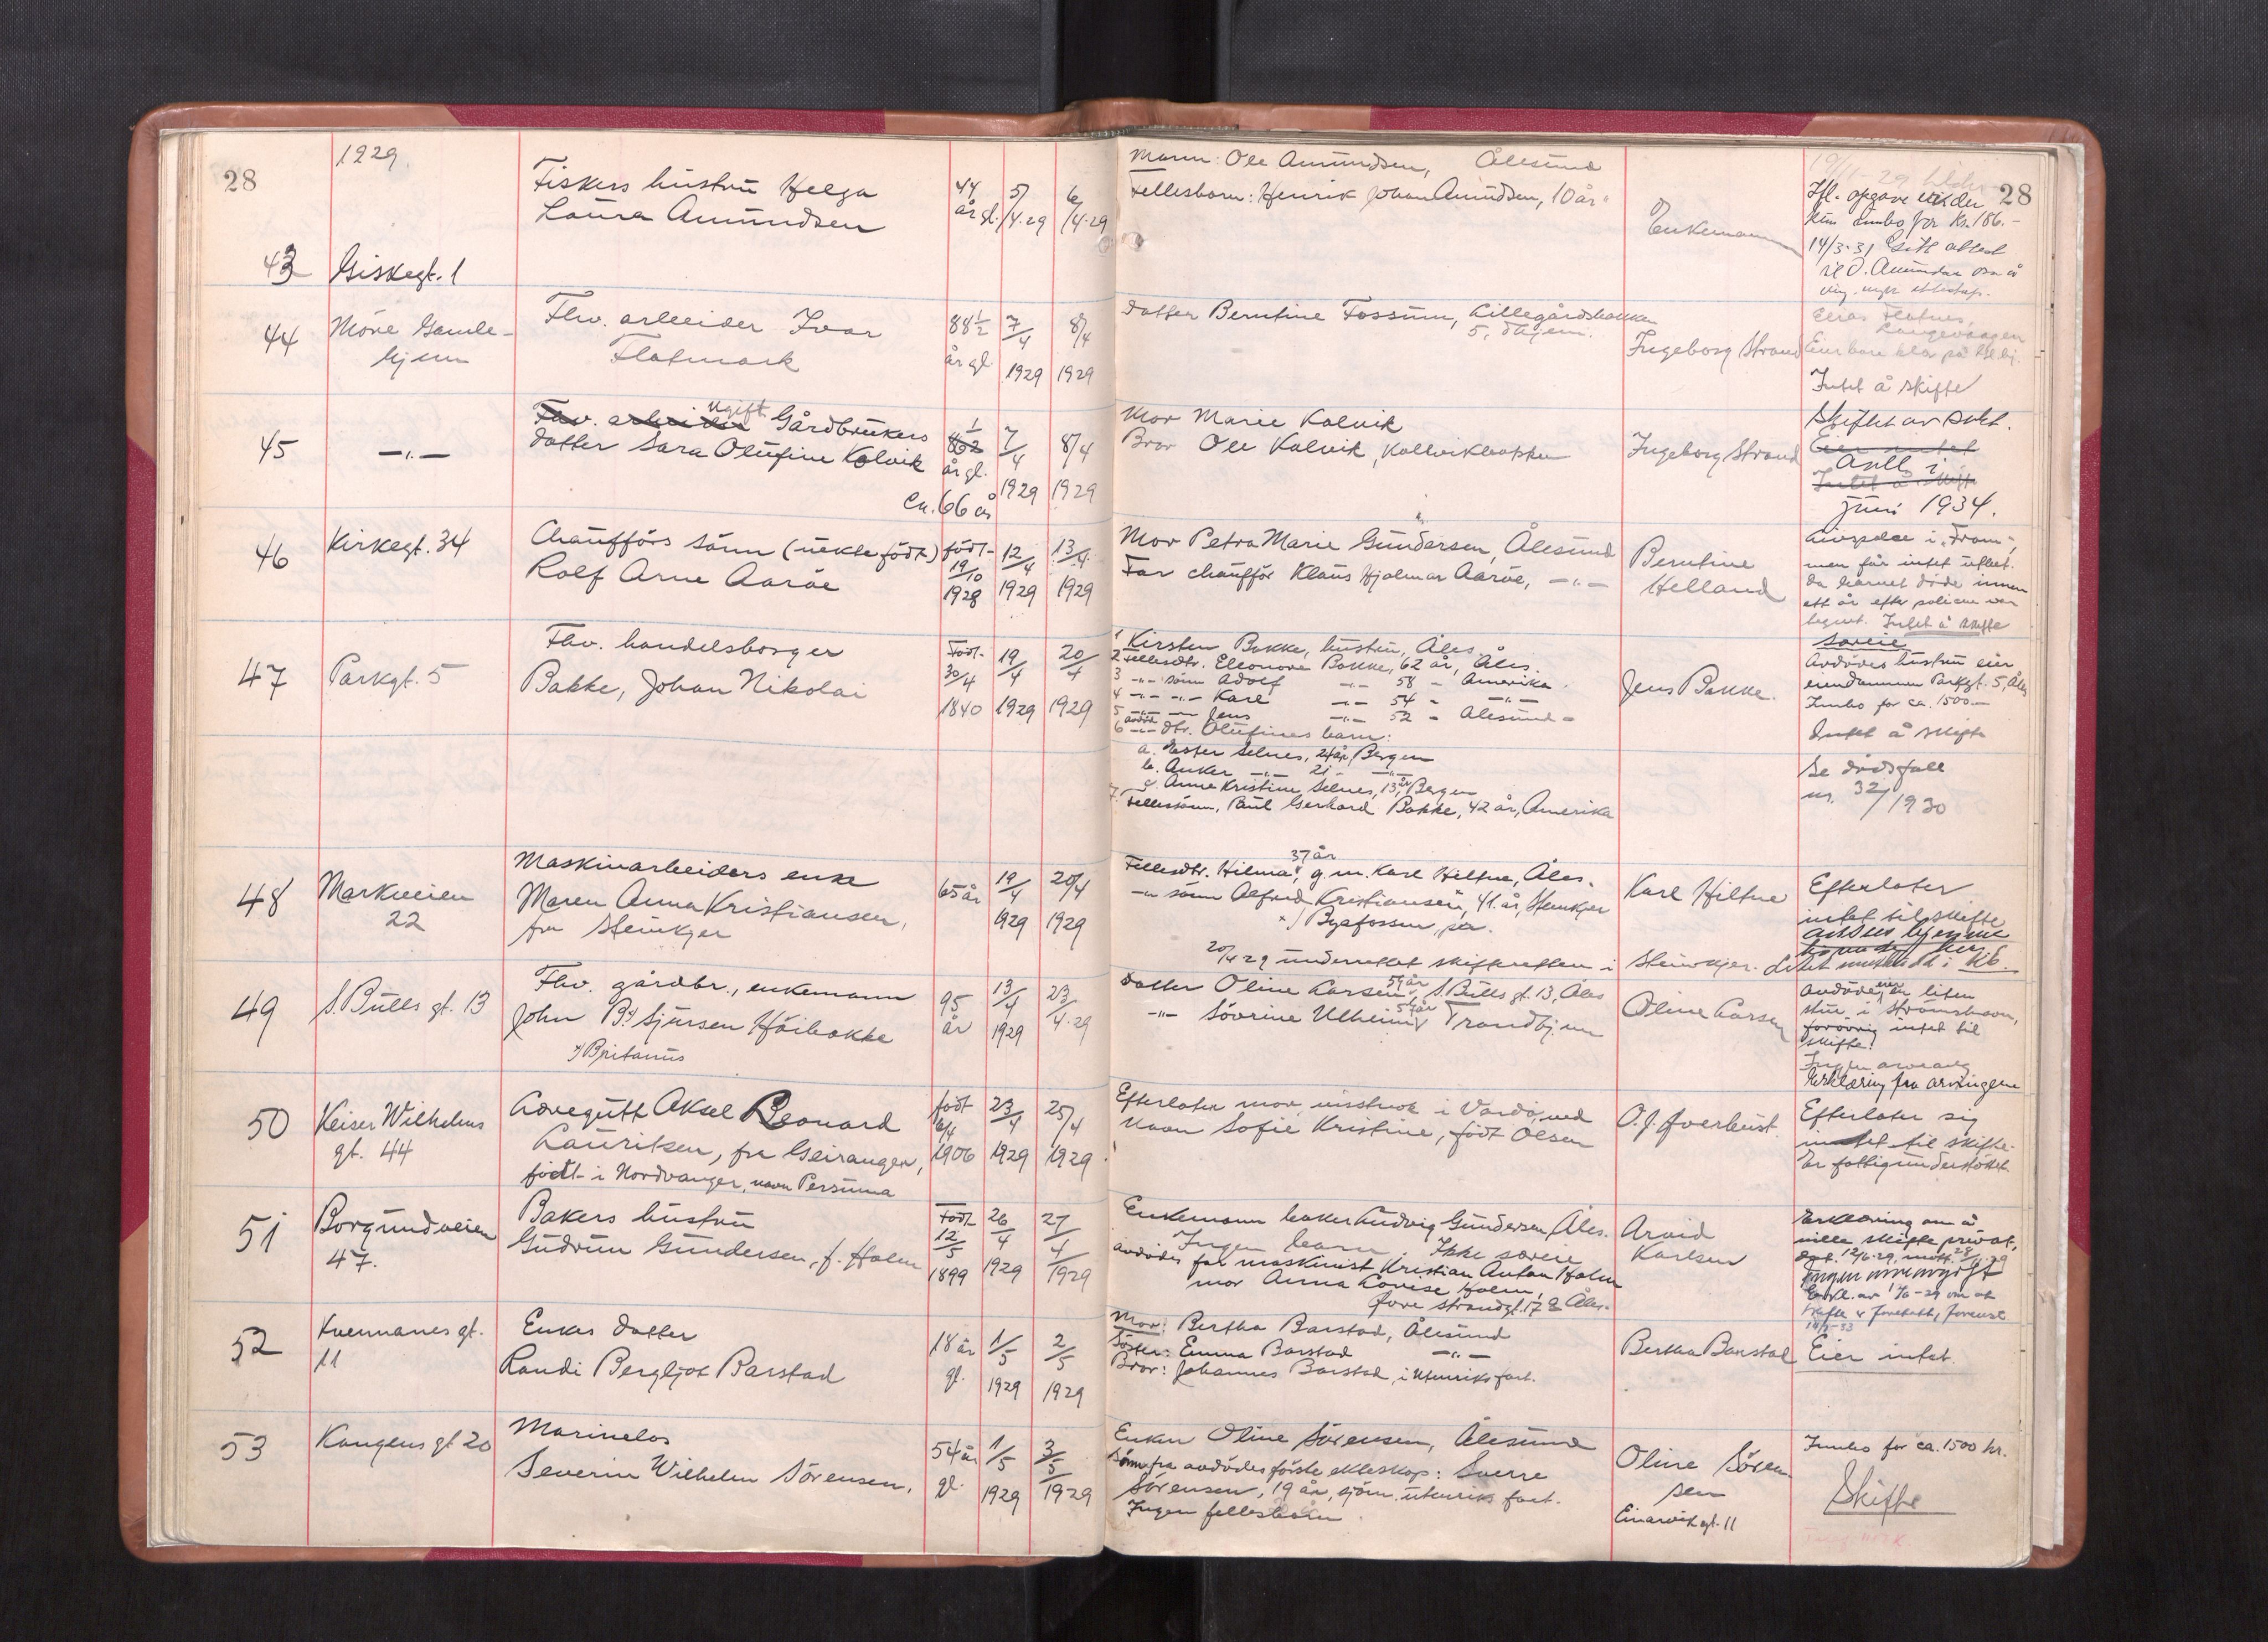 28
1929
Fiskers hustru Helga
Laura Amundsen
44
år gl.
5/
/4.29
6
/4.29
43 Giskegt. 1
Mann: Ole Amundsen, Ålesund
Fellesbarn: Henrik Johan Amundsen, 10 år
Enkemann
28
Ifl. opgave
innbo for Kr. 186.-
14/3-31
44 Møre Gamle-
hjem
Fhv. arbeider Ivar
Flatmark
88 1/2
år gl.
7/4
1929
8/4
1929
Datter Berntine Fossum, Lillegårdsbakken
5, Thjem.
Ingeborg Strand
Elias Flatnes,
Langevaagen
Intet å skifte
45 -"-
Fhv. arbeider Ugift Gårdbrukers
datter Sara Olufine Kolvik
år gl.
ca. 66 år
7/4
1929
8/4
1929
Mor Marie Kalvik
Bror Ole Kalvik,
Ingeborg Strand
Skiftet av
Eier intet
Intet å skifte
juni 1934.
46 Kirkegt. 34
Chaufførs sønn (uekte født)
Rolf Arne Aarøe
født
19/10
1928
12/4
1929
13/4
1929
Mor Petra Marie Gundersen, Ålesund
Far chauffør Klaus Hjalmar Aarøe, -"-
Berntine
Helland
Livspolice i "Fram",
men får intet utbet.
da barnet døde innen
ett år efter policen var
tegnet. Intet å skifte
47 Parkgt. 5
Fhv. handelsborger
Bakke, Johan Nikolai
Født
30/4
1840
19/4
1929
20/4
1929
1 Kirsten Bakke, hustru, Åles.
2 Fellesdtr. Eleonore Bakke, 62 år, Åles.
3 -"- sønn Adolf -"- 58 - Amerika.
4 -"- -"- Karl -"- 54 - -"-
5 -"- -"- Jens -"- 52 - Ålesund
6 avdøde dtr. Olufines barn:
a. Ester Selnes, 24 år, Bergen
b. Anker -"- 21 - -"-
c. Anna Kristine Selnes, 13 år, Bergen
7. Fellessønn, Paul Gerhard Bakke, 42 år, Amerika
Jens Bakke.
Særeie
Avdødes hustru eier
eiendommen Parkgt. 5, Åles
Innbo for ca. 1500.-
Intet å skifte
Se dødsfall
nr. 32/1930
48 Markveien
22
Maskinarbeiders enke
Maren Anna Kristiansen,
fra Steinkjer
65 år
19/4
1929
20/4
1929
37 år
Fellesdtr. Hilma, g.m. Karl Hiltne, Åles.
-"- sønn Alfred Kristiansen, 41 år, Steinkjer
x) Byafossen, pr.
20/4 29 underrettet skifteretten i Steinkjer.
Karl Hiltne
Efterlater
intet til skifte
49 S. Bulls gt. 13
Fhv. gårdbr., enkemann
John B. x) Sjursen Høibakke
x) Britanus
95
år
13/4
1929
23/
4.29
Datter Oline Larsen, 59 år, S. Bulls gt. 13, Åles
-"- Søvrine Ulheim, 54 år Trondhjem
Oline Larsen
avdøde eier en liten
stue i Strømshavn,
forøvrig intet til
skifte.
Erklæring fra arvingene
50 Keiser Wilhelms
gt. 44
Løregutt Aksel Leonard
Lauritsen, fra Geiranger,
født i Nordvanger, navn Persuma
født
1906
23/4
1929
25/4
1929
Efterlater mor, visstnok i Vardø, ved
navn Sofie Kristine, født Olsen
O. J. Överhust.
Efterlater sig
intet til skifte.
Er fattigunderstøttet
51 Borgundveien
47.
Bakers hustru
Gudrun Gundersen, f. Holm
Født
12/5
1899
26/4
1929
27/4
1929
Enkemann baker Ludvig Gundersen, Åles.
Ingen barn. Ikke særeie
avdødes far maskinist Kristian Anton Holm
mor Anna Lovise Holm,
Øvre Strandgt. 17 Åles.
Arvid
Karlsen
Erklæring om å
ville skifte privat,
dat. 12/6.29, mott. 28/6.29
Ingen arveavgift
52 Kvennanes gt.
11
Enkes datter
Randi Bergljot Barstad
18 år
gl.
1/5
1929
2/5
1929
Mor: Bertha Barstad, Ålesund
Søster: Emma Barstad -"-
Bror: Johannes Barstad, i utenriks fart.
Bertha Barstad
Eier intet.
53 Kongens gt 20
Marinelos
Severin Wilhelm Sørensen.
54 år
gl.
1/5
1929
3/5
1929
Enken Oline Sørensen, Ålesund
Sønn fra avdødes første ekteskap: Sverre
Sørensen, 19 år, sjøm. utenriks fart.
Ingen fellesbarn.
Oline Søren
sen
Einarvikgt. 11
Innbo for ca. 1500 kr.
Skifte